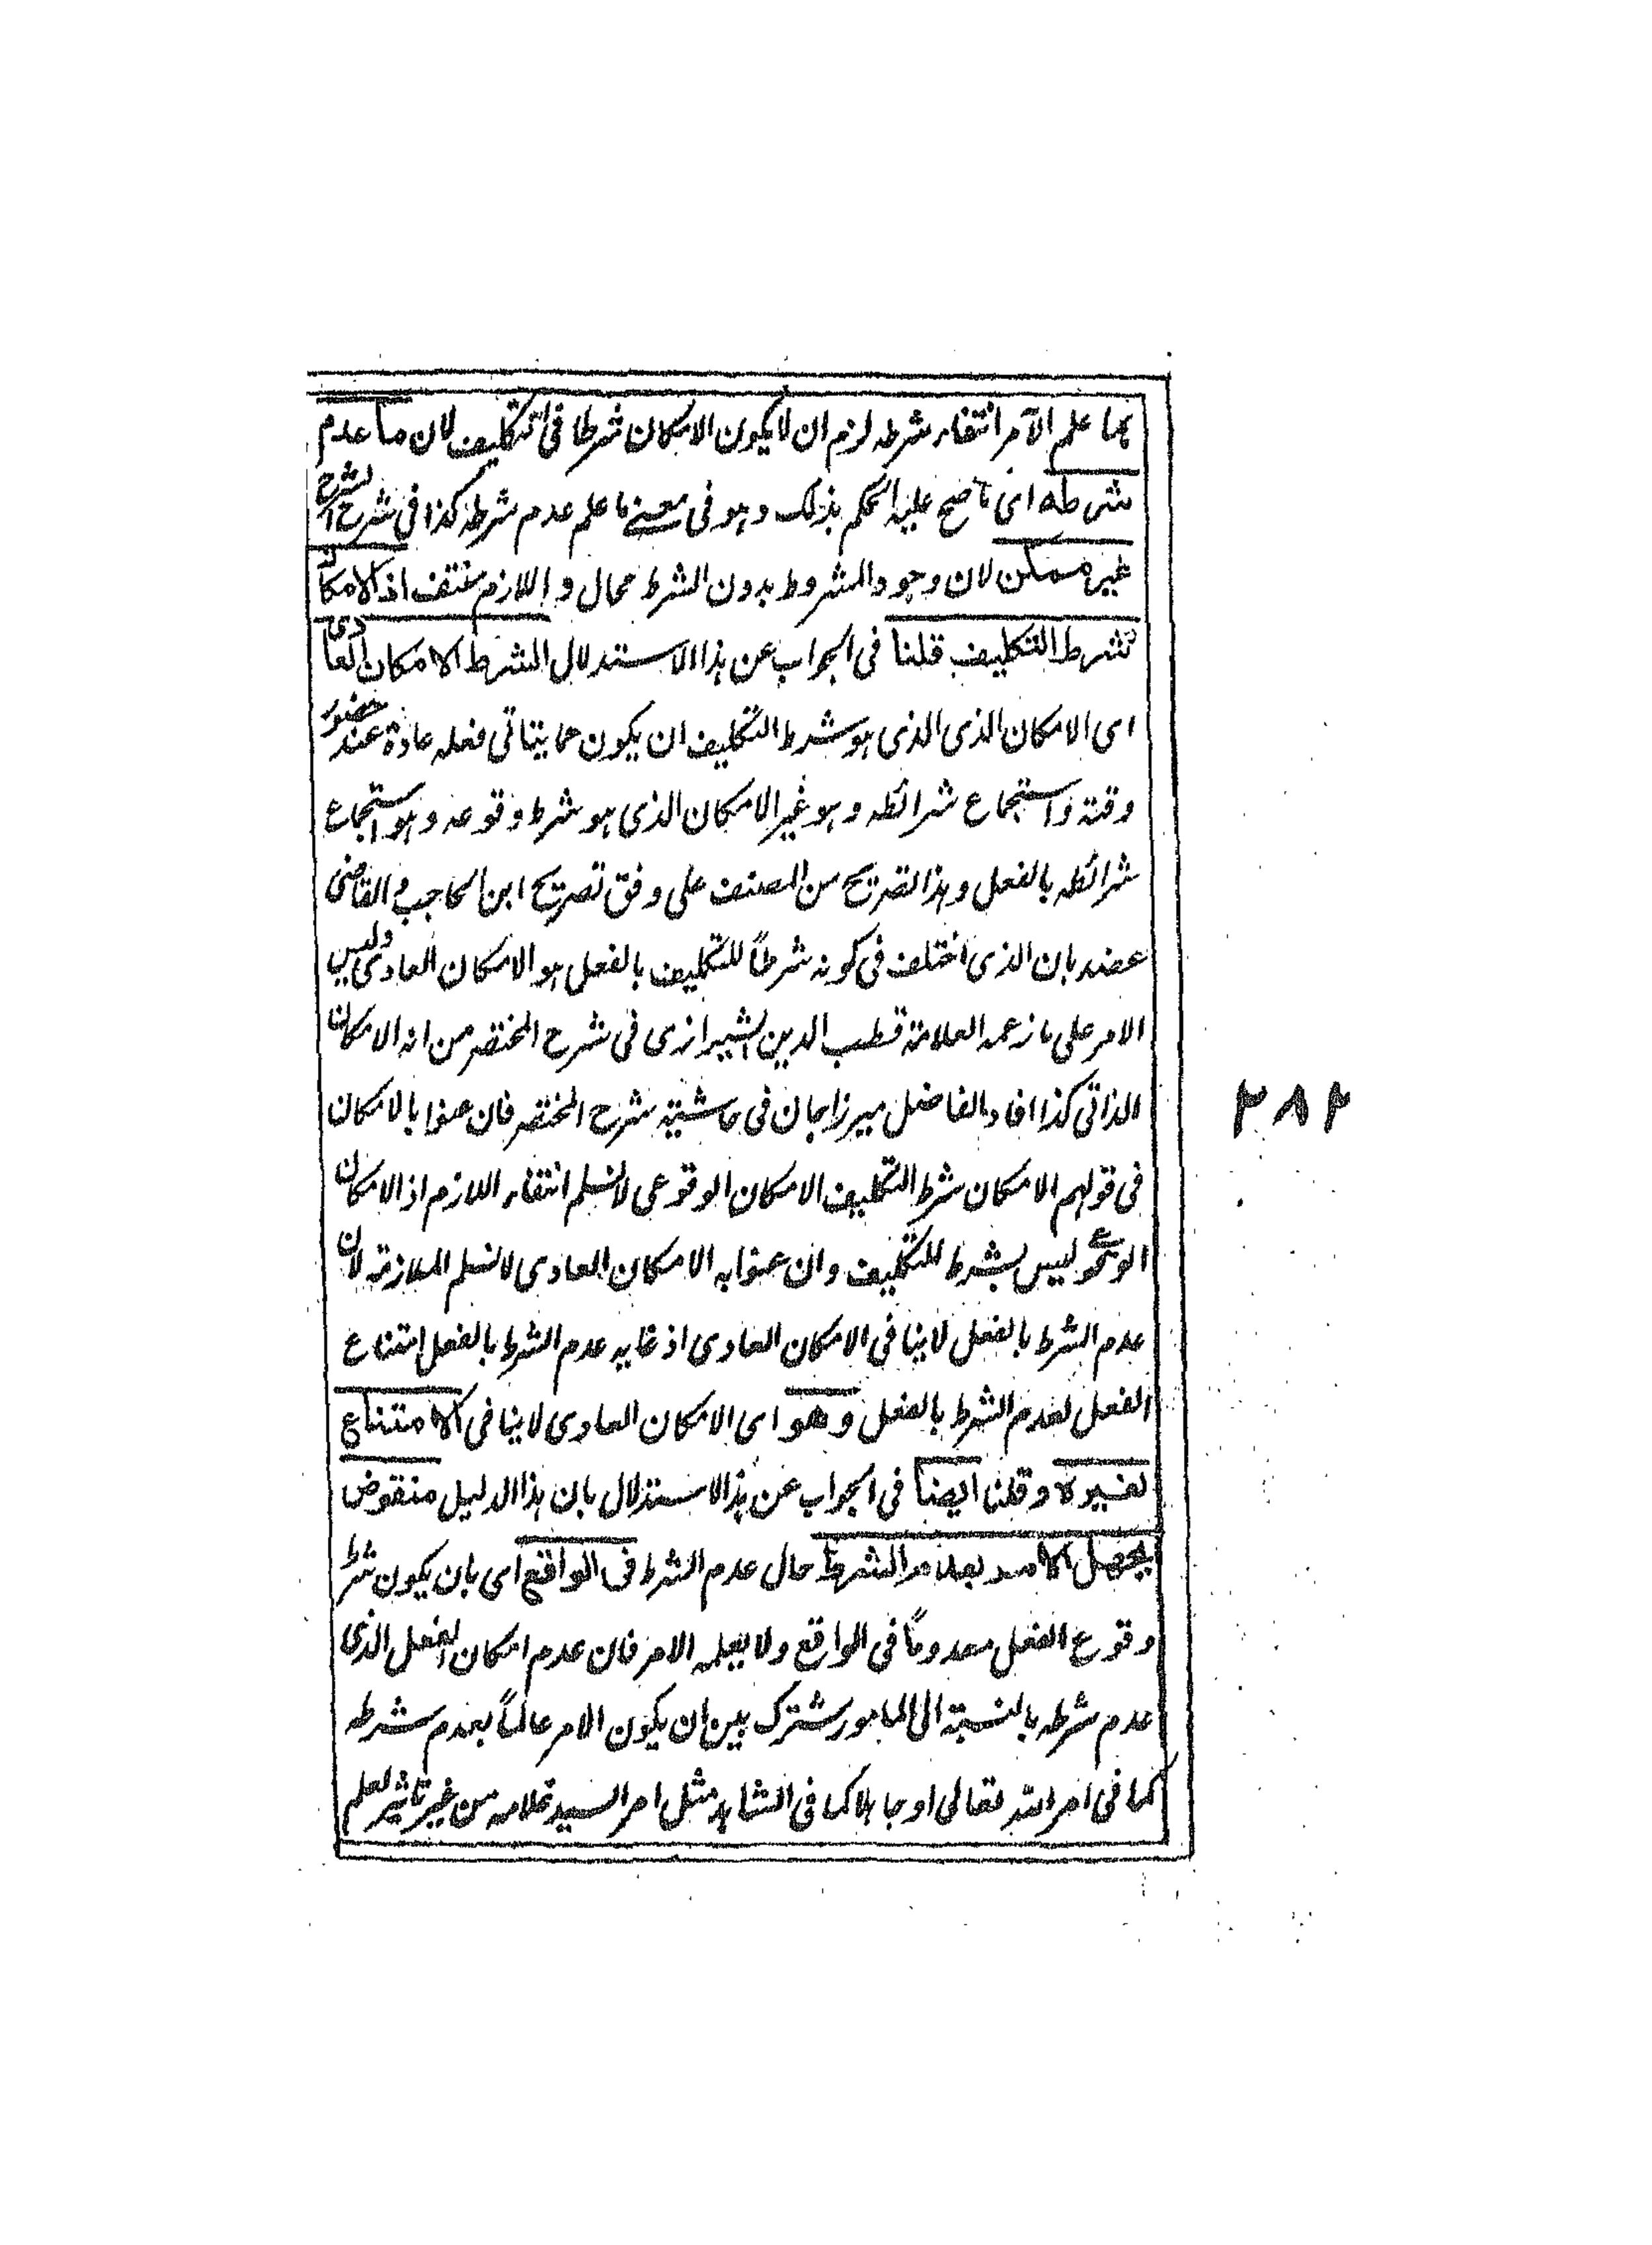 بما علم الآمر انتفاء شرطه لزم ان لا يكون الامكان شرطا فى التكليف لان ما عدم
شرطه اى ما صح عليه الحكم بذلك وهو فى معنى ما علم عدم شرطه كذا فى شرح الشرح
غير ممكن لان وجود المشروط بدون الشرط محال و اللازم منتف اذ الامكان
شرط التكليف قلنا فى الجواب عن هذا الاستدلال الشرط الامكان العادى
اى الامكان الذى الذى هو شرط التكليف ان يكون مما يتاتى فعله عادة عند حضور
وقته واستجماع شرائطه وهو غير الامكان الذى هو شرط وقوعه وهو استجماع
شرائطه بالفعل وهذا تصريح من المصنف على وفق تصريح ابن الحاجب والقاضى
عضد بان الذى اختلف فى كونه شرطاً للتكليف بالفعل هو الامكان العادى وليس
الامر على ما زعمه العلامة قطب الدين الشيرازى فى شرح المختصر من انه الامكان
الذاتى كذا افاد الفاضل ميرزاجان فى حاشيته شرح المختصر فان عنوا بالامكان
فى قولهم الامكان شرط التكليف الامكان الوقوعى لا نسلم انتفاء اللازم اذ الامكان
الوقوعى ليس بشرط للتكليف وان عنوا به الامكان العادى لا نسلم الملازمة لان
عدم الشرط بالفعل لا ينافى الامكان العادى اذ غايه عدم الشرط بالفعل امتناع
الفعل لعدم الشرط بالفعل وهو اى الامكان العادى لا ينافى الامتناع
لغيره وقلنا ايضا فى الجواب عن هذا الاستدلال بان هذا الدليل منقوض
بجهل الامر بعدم الشرط حال عدم الشرط فى الواقع اى بان يكون شرط
وقوع الفعل معدوماً فى الواقع ولا يعلمه الامر فان عدم امكان الفعل الذى
عدم شرطه بالنسبة الى المامور مشترك بين ان يكون الامر عالماً بعدم شرطه
كما فى امر الله تعالى او جاهلا كما فى الشاهد مثل امر السيد غلامه من غير تاثير لعلم
٢٨٢